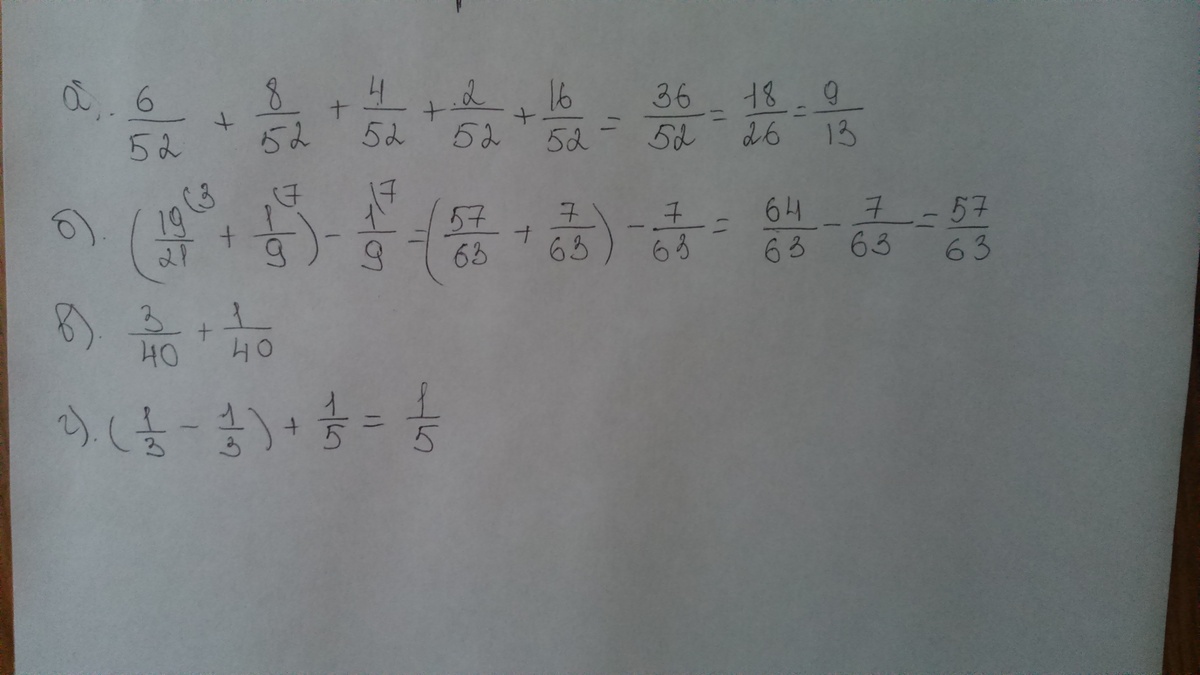 а). 6/52 + 8/52 + 4/52 + 2/52 + 16/52 = 36/52 = 18/26 = 9/13
б). (19/21 (3 + 1/9 (7) - 1/9 (7 = (57/63 + 7/63) - 7/63 = 64/63 - 7/63 = 57/63
в). 3/40 + 1/40
г). (1/3 - 1/3) + 1/5 = 1/5